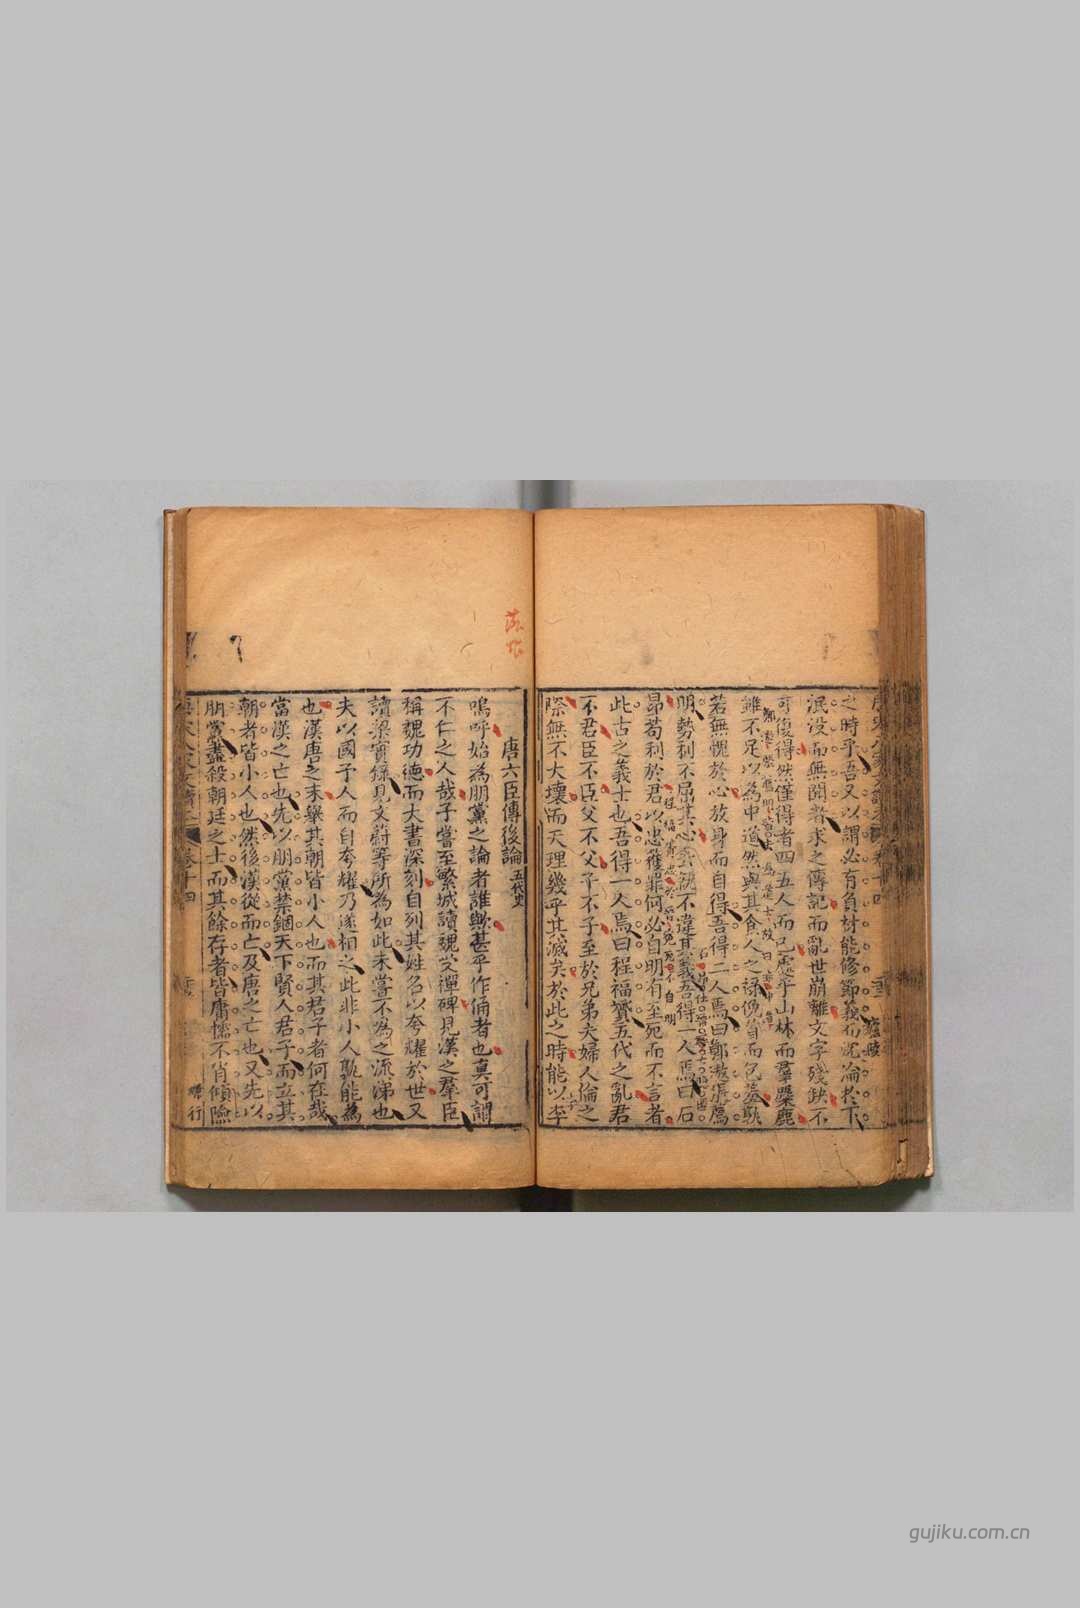 之時乎吾又以謂必有負材能修節義而沉淪於下
泯没而無聞者求之傳記而亂世崩離文字殘缺不
可復得然僅得者四五人而已處乎山林而羣麋鹿
雖不足以為中道然與其食人之禄俛首而包羞孰
若無愧於心放身而自得吾得二人焉曰鄭遨張薦
明勢利不屈其心去就不違其義吾得一人焉曰石
昂苟利於君以忠獲罪何必自明有至死而不言者
此古之義士也吾得一人焉曰程福贇五代之亂君
不君臣不臣父不父子不子至於兄弟夫婦人倫之
際無不大壞而天理幾乎其滅矣於此之時能以孝
唐六臣傳後論 五代史
嗚呼始為朋黨之論者誰歟甚乎作俑者也真可謂
不仁之人哉予嘗至繁城讀魏受禪碑見漢之羣臣
稱魏功德而大書深刻自列其姓名以夸耀於世又
讀梁實錄見文蔚等所為如此未嘗不為之流涕也
夫以國予人而自夸耀及遂相之此非小人孰能為
也漢唐之末舉其朝皆小人也而其君子者何在哉
當漢之亡也先以朋黨禁錮天下賢人君子而立其
朝者皆小人也然後漢從而亡及唐之亡也又先以
朋黨盡殺朝廷之士而其餘存者皆庸懦不肖傾險
gujiku.com.cn